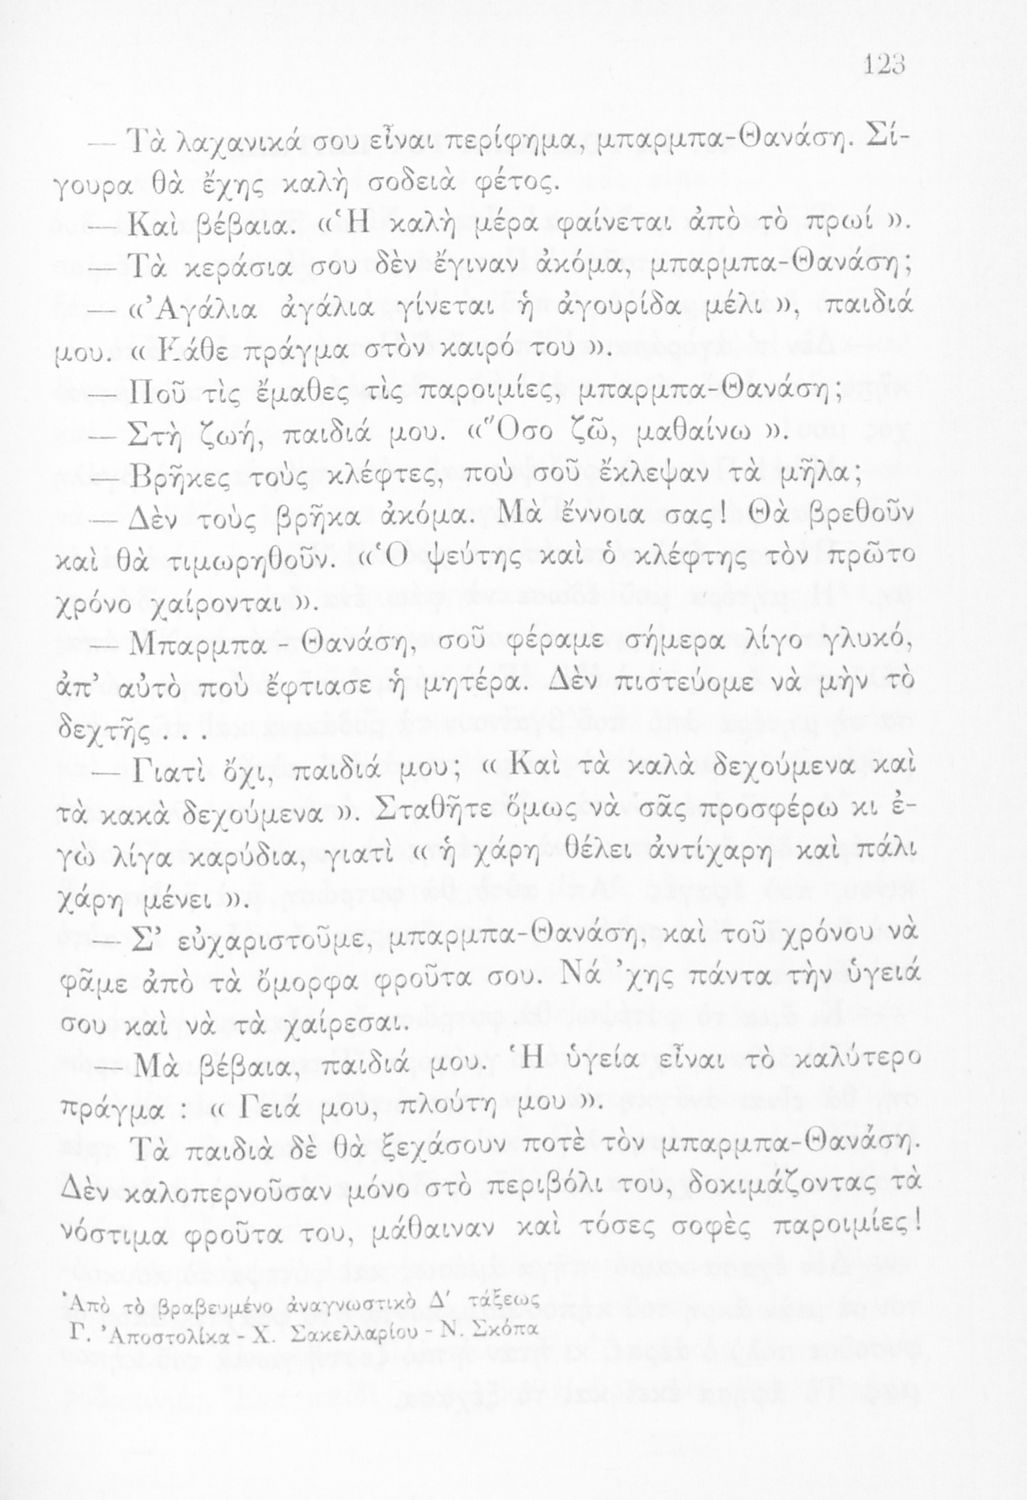 123
— Τὰ λαχανικά σου εἶναι περίφημα, μπαρμπα-Θανάση. Σί-
γουρα θὰ ἔχης καλὴ σοδειὰ φέτος.
— Καὶ βέβαια. «Ἡ καλὴ μέρα φαίνεται ἀπὸ τὸ πρωί ».
— Τὰ κεράσια σου δὲν ἔγιναν ἀκόμα, μπαρμπα-Θανάση;
— «Ἀγάλια ἀγάλια γίνεται ἡ ἀγουρίδα μέλι », παιδιά
μου. « Κάθε πράγμα στὸν καιρό του ».
— Ποῦ τὶς ἔμαθες τὶς παροιμίες, μπαρμπα-Θανάση;
— Στὴ ζωή, παιδιά μου. «Ὅσο ζῶ, μαθαίνω ».
— Βρῆκες τοὺς κλέφτες, ποὺ σοῦ ἔκλεψαν τὰ μῆλα;
— Δὲν τοὺς βρῆκα ἀκόμα. Μὰ ἔννοια σας! Θὰ βρεθοῦν
καὶ θὰ τιμωρηθοῦν. «Ὁ ψεύτης καὶ ὁ κλέφτης τὸν πρῶτο
χρόνο χαίρονται ».
— Μπαρμπα - Θανάση, σοῦ φέραμε σήμερα λίγο γλυκό,
ἀπ’ αὐτὸ ποὺ ἔφτιασε ἡ μητέρα. Δὲν πιστεύομε νὰ μὴν τὸ
δεχτῆς . . .
— Γιατὶ ὄχι, παιδιά μου; « Καὶ τὰ καλὰ δεχούμενα καὶ
τὰ κακὰ δεχούμενα ». Σταθῆτε ὅμως νὰ σᾶς προσφέρω κι ἐ-
γὼ λίγα καρύδια, γιατὶ « ἡ χάρη θέλει ἀντίχαρη καὶ πάλι
χάρη μένει ».
— Σ’ εὐχαριστοῦμε, μπαρμπα-Θανάση, καὶ τοῦ χρόνου νὰ
φᾶμε ἀπὸ τὰ ὄμορφα φροῦτα σου. Νά ’χης πάντα τὴν ὑγειά
σου καὶ νὰ τὰ χαίρεσαι.
— Μὰ βέβαια, παιδιά μου. Ἡ ὑγεία εἶναι τὸ καλύτερο
πράγμα : « Γειά μου, πλούτη μου ».
Τὰ παιδιὰ δὲ θὰ ξεχάσουν ποτὲ τὸν μπαρμπα-Θανάση.
Δὲν καλοπερνοῦσαν μόνο στὸ περιβόλι του, δοκιμάζοντας τὰ
νόστιμα φροῦτα του, μάθαιναν καὶ τόσες σοφὲς παροιμίες!
Ἀπὸ τὸ βραβευμένο ἀναγνωστικὸ Δ' τάξεως
Γ. Ἀποστολίκα - Χ. Σακελλαρίου - Ν. Σκόπα